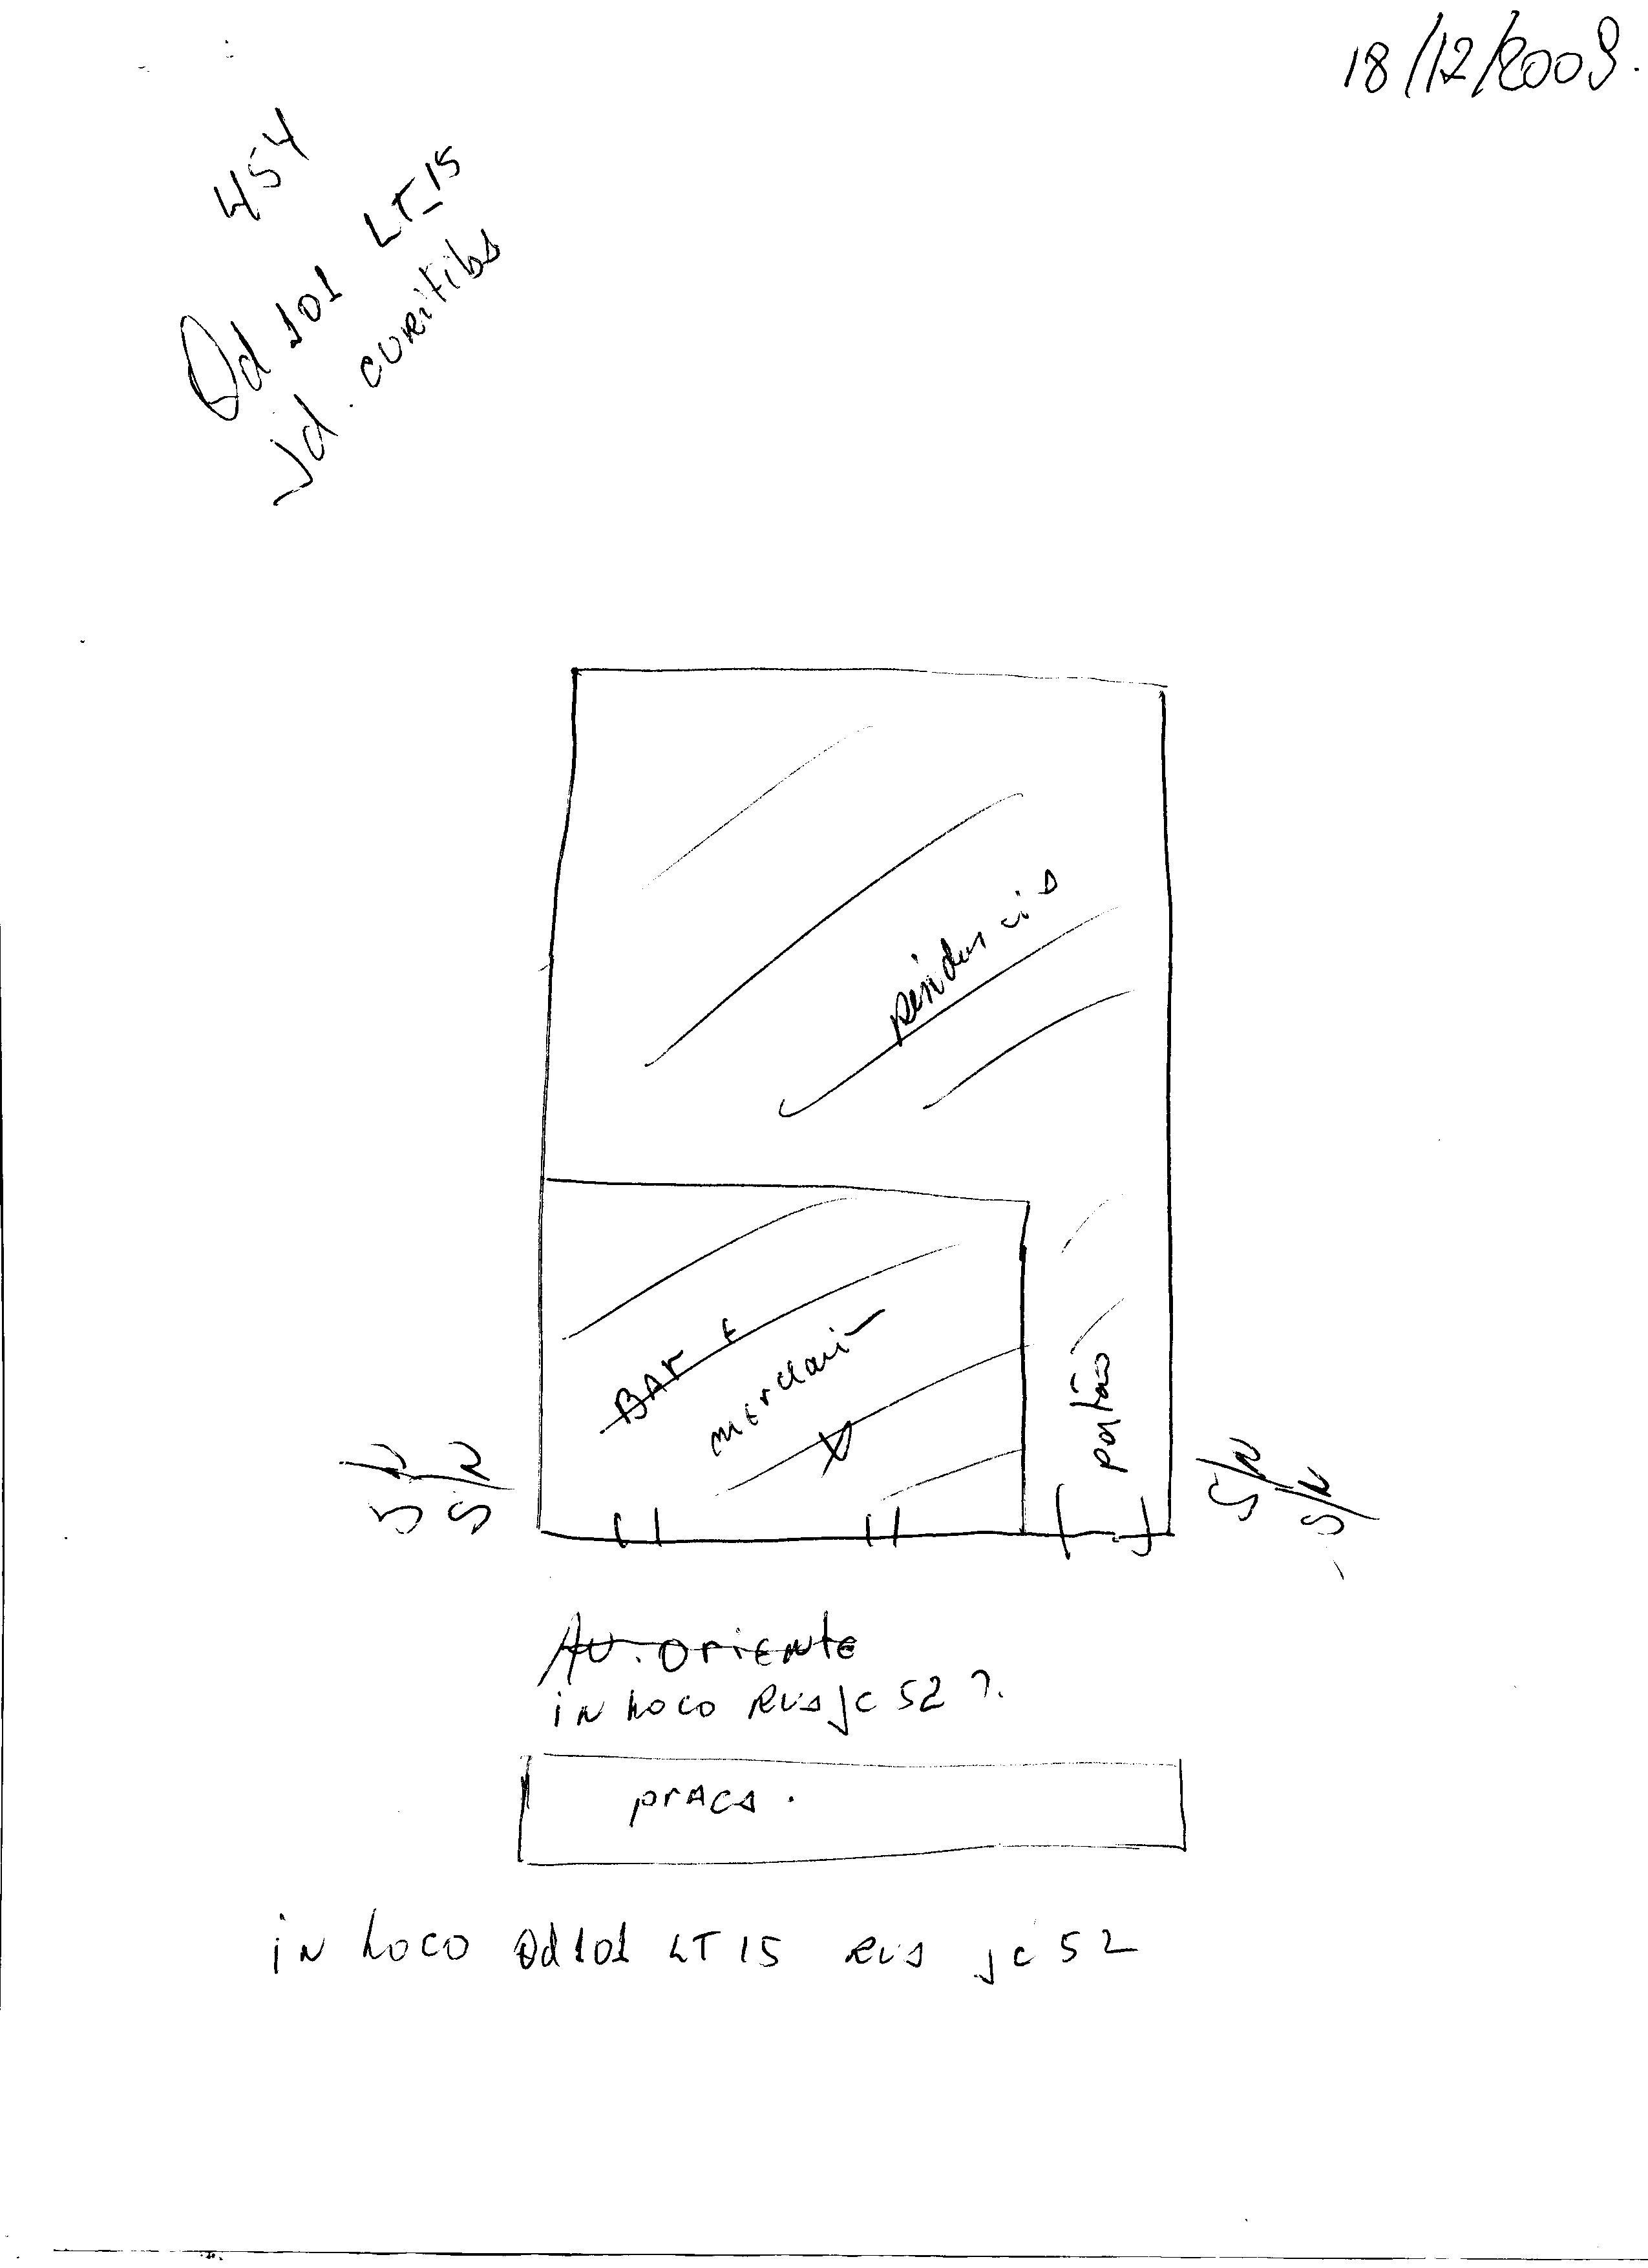 18/12/2009.
454
Qd 101 LT_15
jd. curitiba
BAr E
portão
S/N
S/N
S/N
S/N
Av. oriENtE
iN Loco Rua jc 52 ?.
prAca.
iN Loco Qd101 LT 15 Rua jc 52